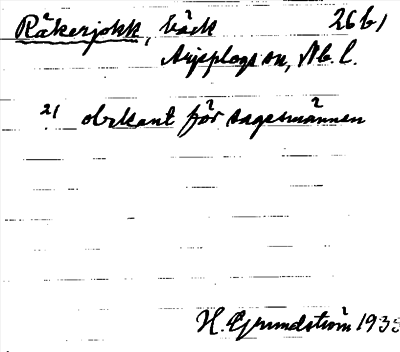 Råkerjokk, bäck 26 b 1
Arjeplogs sn, Nb. l.
21 obekant för sagesmannen
H. Grundström 1935